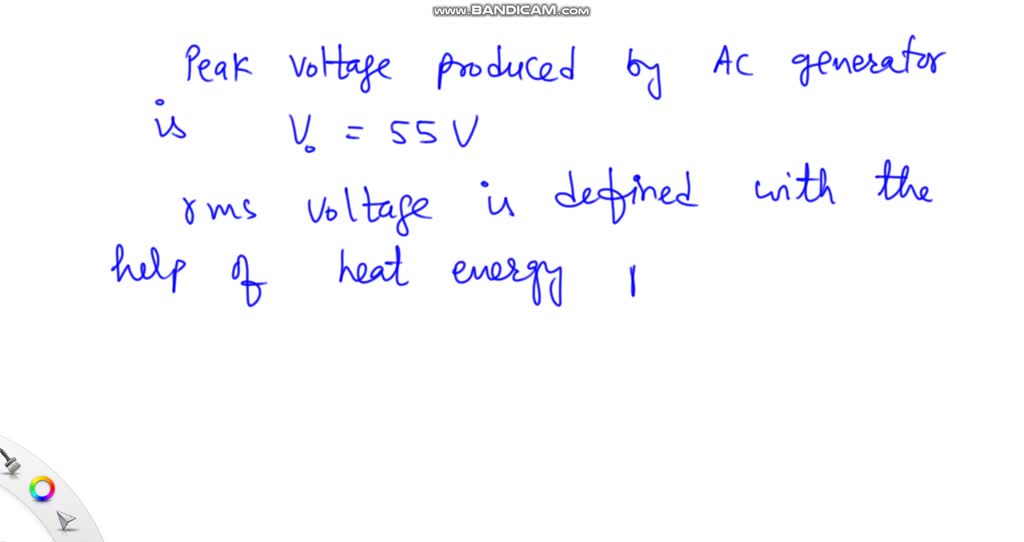 www.BANDICAM.com
Peak voltage produced by AC generator
is V₀ = 55 V
rms voltage is defined with the
help of heat energy